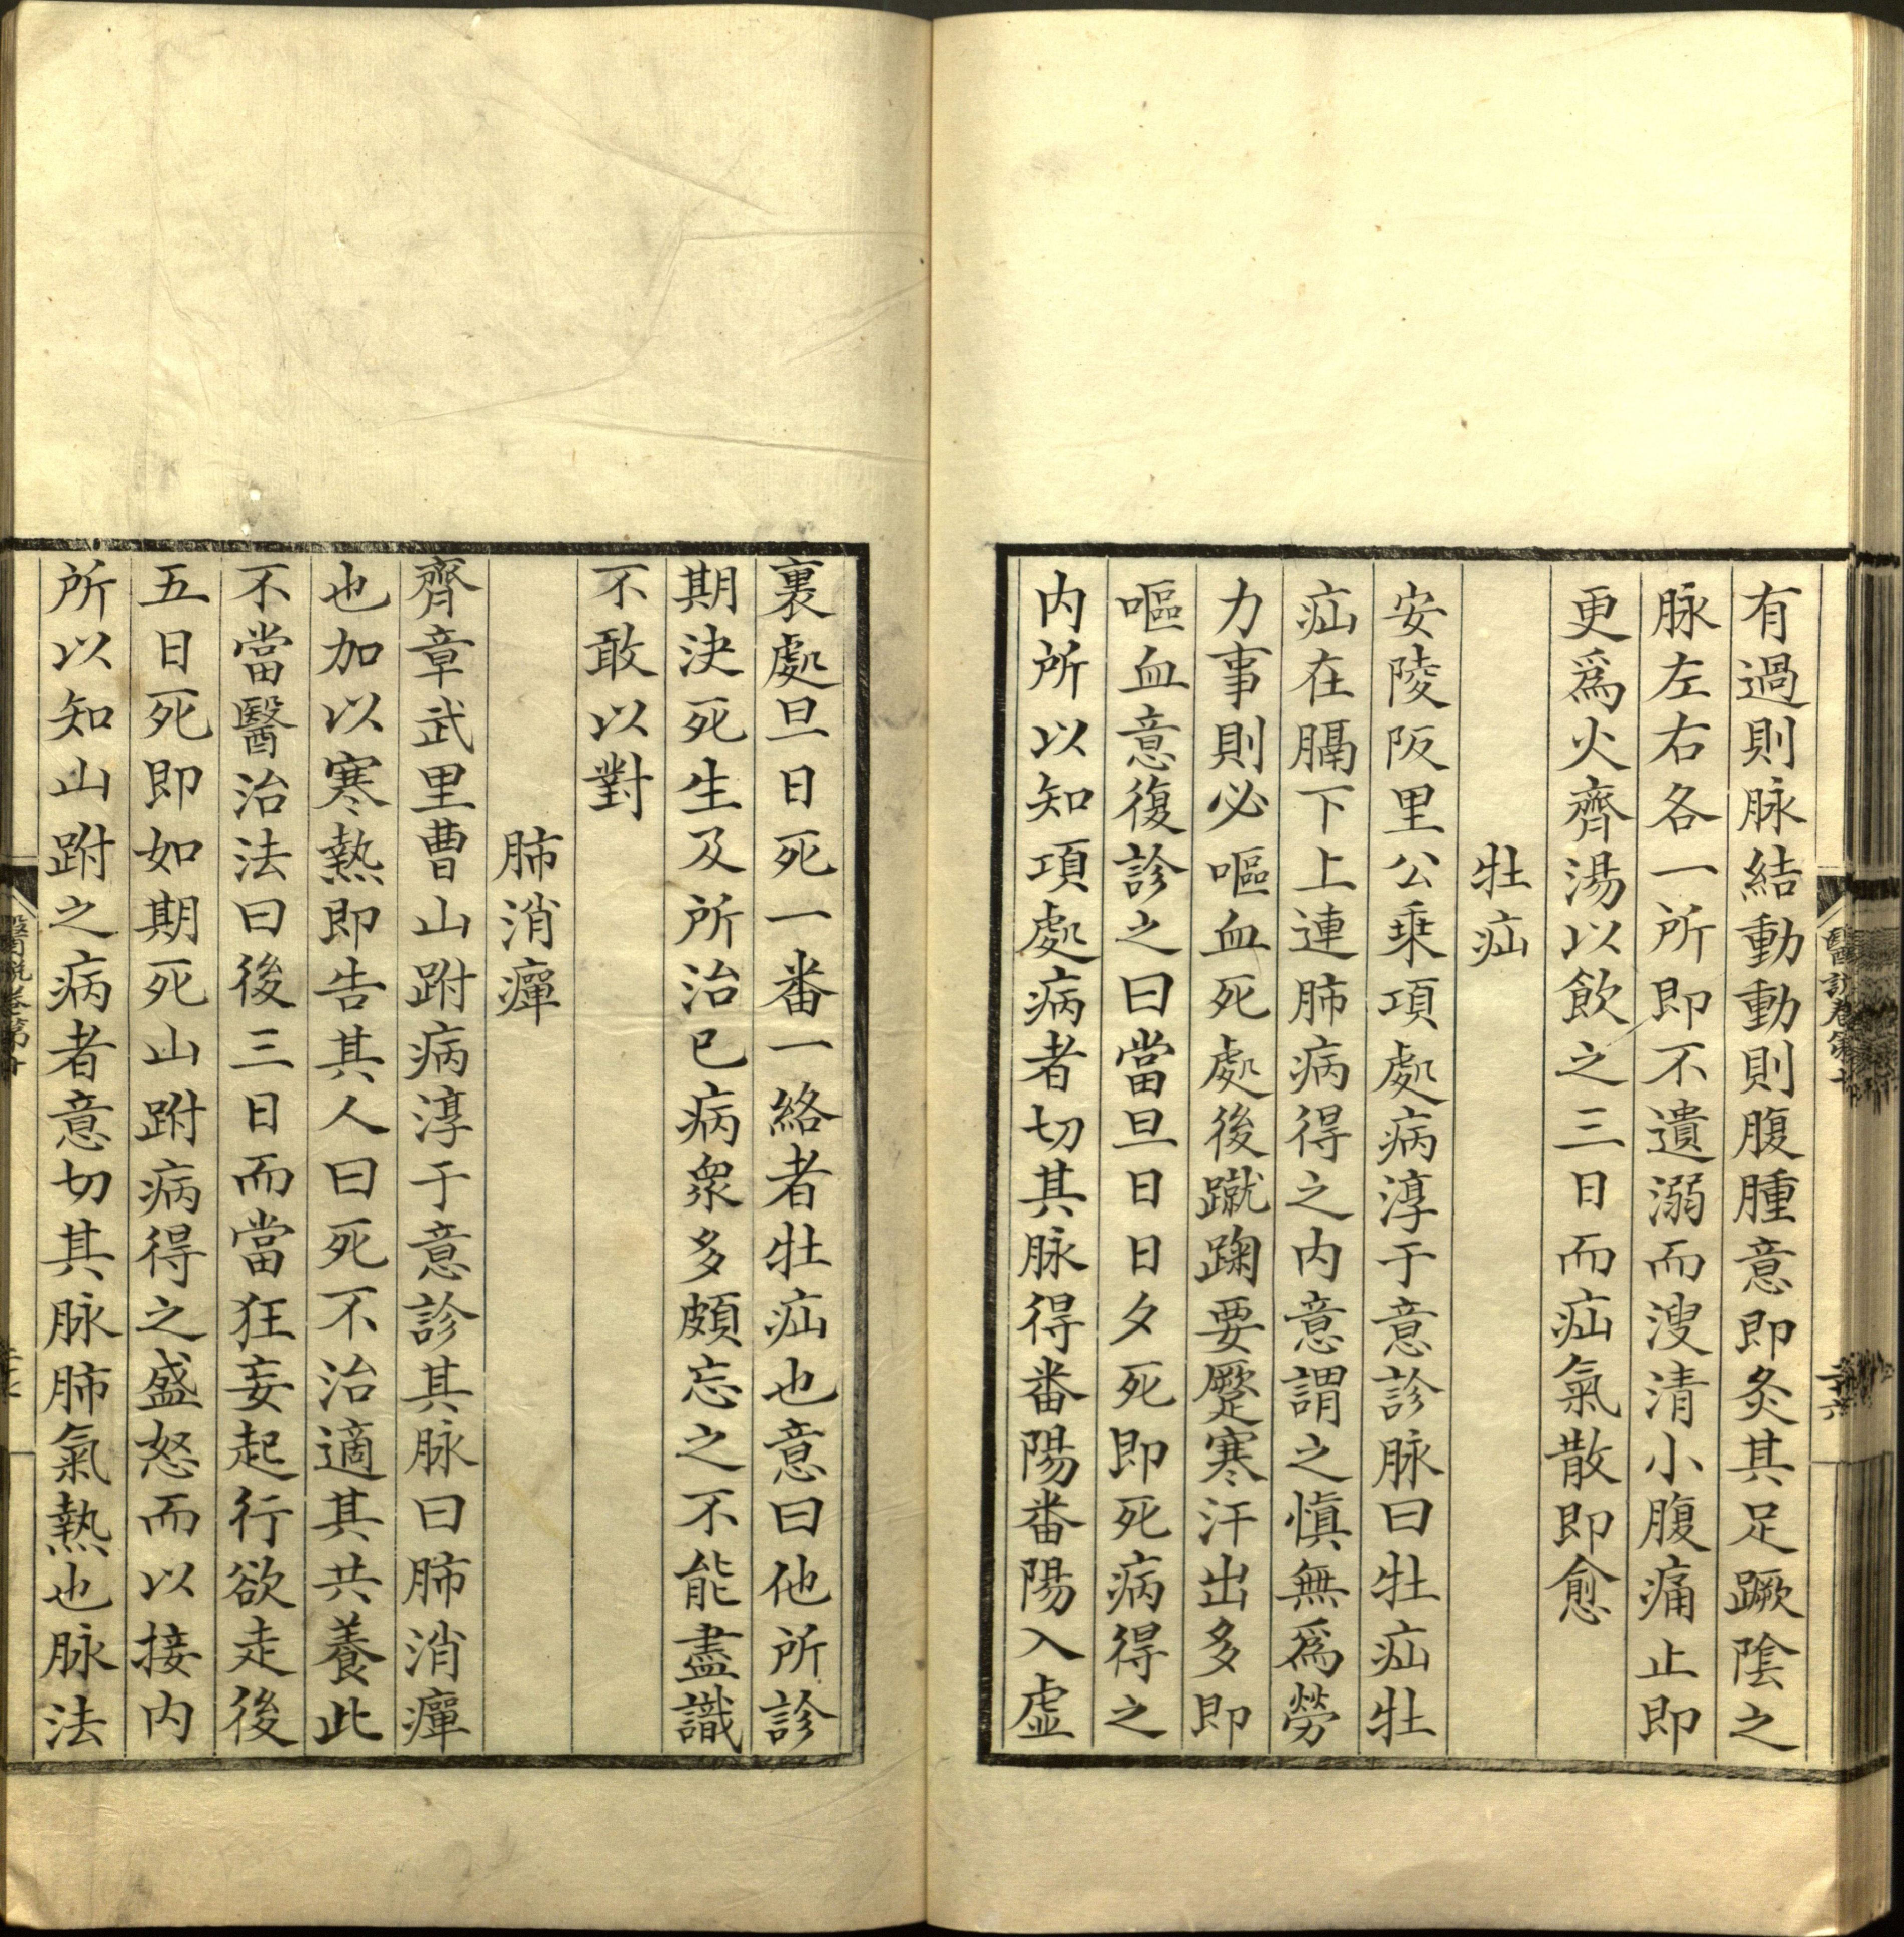 有過則脉結動動則腹腫意即灸其足蹶陰之
脉左右各一所即不遺溺而溲清小腹痛止即
更爲火齊湯以飲之三日而疝氣散即愈
牡疝
安陵阪里公乗項處病淳于意診脉曰牡疝牡
疝在膈下上連肺病得之内意謂之慎無爲勞
力事則必嘔血死處後蹴踘要蹷寒汗出多即
嘔血意復診之曰當旦日日夕死即死病得之
内所以知項處病者切其脉得番陽番陽入虚
醫説卷第十
二十六
裏處旦日死一番一絡者牡疝也意曰他所診
期決死生及所治已病衆多頗忘之不能盡識
不敢以對
肺消癉
齊章武里曹山跗病淳于意診其脉曰肺消癉
也加以寒熱即告其人曰死不治適其共養此
不當醫治法曰後三日而當狂妄起行欲走後
五日死即如期死山跗病得之盛怒而以接内
所以知山跗之病者意切其脉肺氣熱也脉法
醫説卷第十